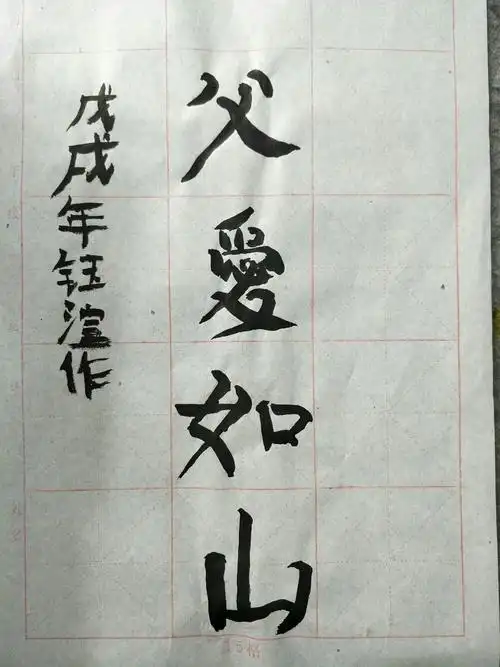 父愛如山
戊戌年钰渲作